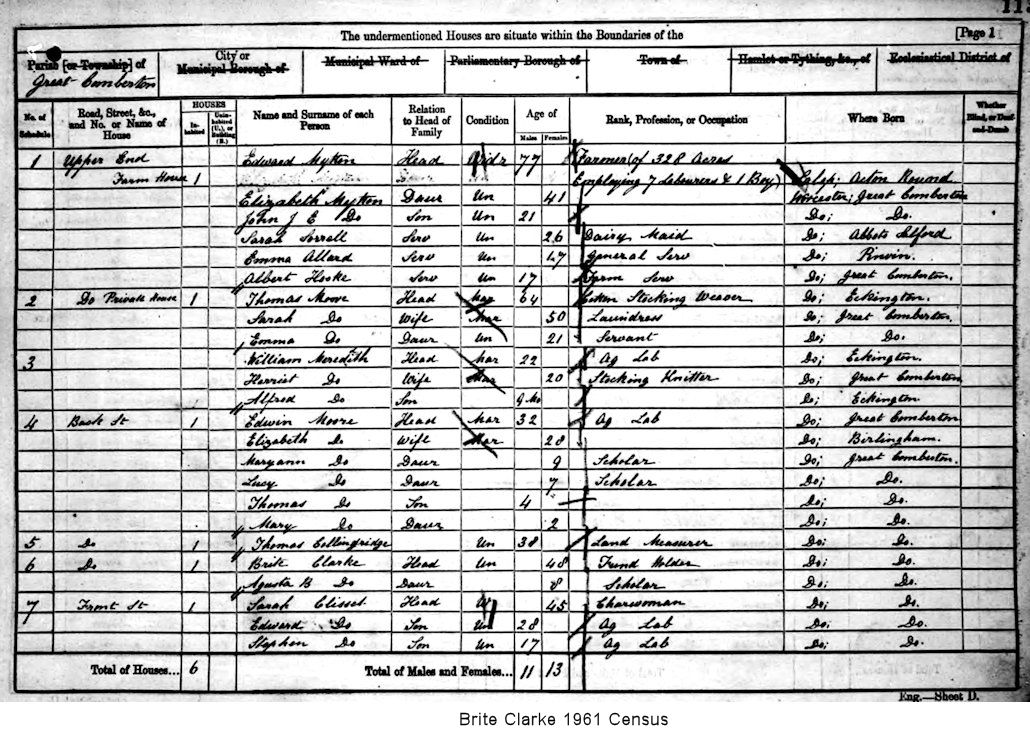 The undermentioned Houses are situate within the Boundaries of the [Page 1
Parish [or Township] of City or Municipal Borough of Municipal Ward of Parliamentary Borough of Town of Hamlet or Tything, &c., of Ecclesiastical District of
Great Comberton
No. of Schedule Road, Street, &c., and No. or Name of House HOUSES Inhabited Uninhabited (U.), or Building (B.) Name and Surname of each Person Relation to Head of Family Condition Age of Males Females Rank, Profession, or Occupation Where Born Whether Blind, or Deaf-and-Dumb
1 Upper End Edward Mytton Head Widr 77 Farmer (of 328 Acres
Farm House 1 Employing 7 Labourers & 1 Boy) Salop; Acton Round
Elizabeth Mytton Daur Un 41 Worcester; Great Comberton
John J E Do Son Un 21 Do; Do.
Sarah Sorrell Serv Un 26 Dairy Maid Do; Abbots Salford
Emma Allard Serv Un 47 General Serv Do; Pinvin.
Albert Hooke Serv Un 17 Farm Serv Do; Great Comberton.
2 Do Private House 1 Thomas Moore Head Mar 64 Stocking Weaver Do; Eckington.
Sarah Do Wife Mar 50 Laundress Do; Great Comberton.
Emma Do Daur Un 21 Servant Do; Do.
3 William Meredith Head Mar 22 Ag Lab Do; Eckington.
Harriet Do Wife Mar 20 Stocking Knitter Do; Great Comberton
Alfred Do Son 9 Mo Do; Eckington
4 Back St 1 Edwin Moore Head Mar 32 Ag Lab Do; Great Comberton
Elizabeth Do Wife Mar 28 Do; Birlingham.
Maryann Do Daur 9 Scholar Do; Great Comberton.
Lucy Do Daur 7 Scholar Do; Do.
Thomas Do Son 4 Do; Do.
Mary Do Daur 2 Do; Do.
5 Do 1 Thomas Collingridge Un 38 Land Measurer Do; Do.
6 Do 1 Brite Clarke Head Un 48 Fund Holder Do; Do.
Agusta B Do Daur 8 Scholar Do; Do.
7 Front St 1 Sarah Clisset Head W 45 Charwoman Do; Do.
Edward Do Son Un 28 Ag Lab Do; Do.
Stephen Do Son Un 17 Ag Lab Do; Do.
Total of Houses... 6 Total of Males and Females... 11 13
Eng.—Sheet D.
Brite Clarke 1961 Census